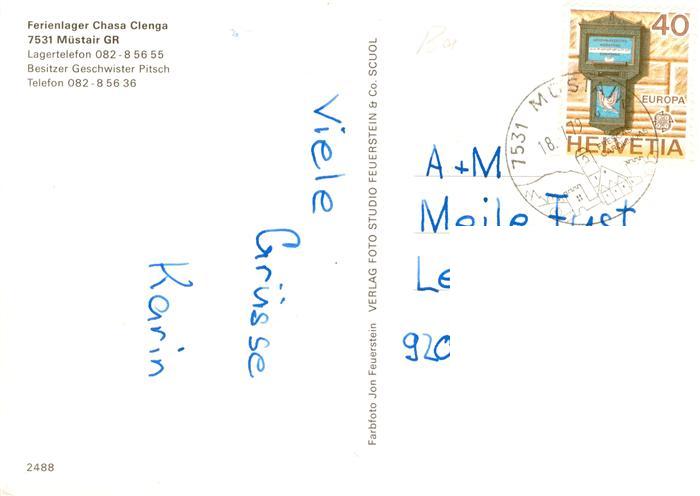 Ferienlager Chasa Clenga
7531 Müstair GR
Lagertelefon 082 - 8 56 55
Besitzer Geschwister Pitsch
Telefon 082 - 8 56 36
Viele
Grüsse
Karin
2488
Farbfoto Jon Feuerstein VERLAG FOTO STUDIO FEUERSTEIN & Co. SCUOL
40
EUROPA
HELVETIA
7531 MÜSTAIR
18.
A + M
Le
920